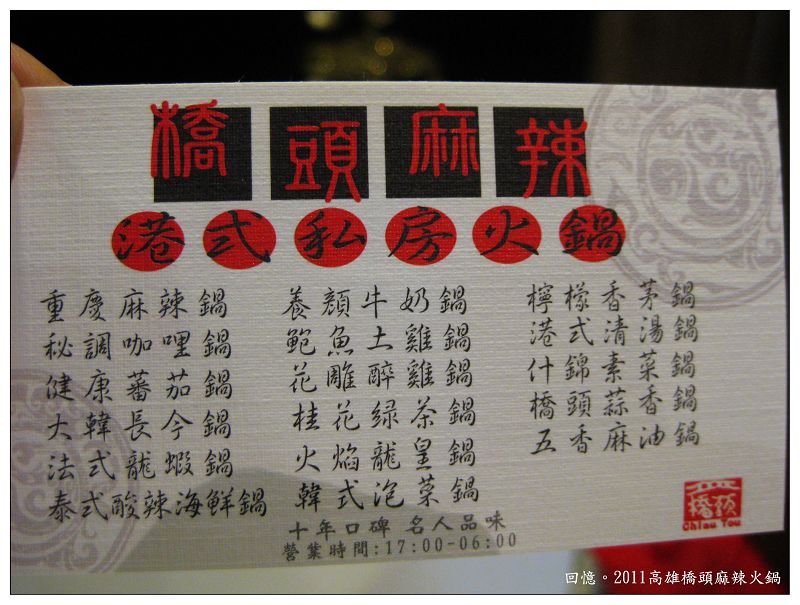 橋頭麻辣
港式私房火鍋
重慶麻辣鍋
秘調咖哩鍋
健康蕃茄鍋
大韓長今鍋
法式龍蝦鍋
泰式酸辣海鮮鍋
養顏牛奶鍋
鮑魚土雞鍋
花雕醉雞鍋
桂花綠茶鍋
火焰龍皇鍋
韓式泡菜鍋
檸檬香茅鍋
港式清湯鍋
什錦素菜鍋
橋頭蒜香鍋
五香麻油鍋
十年口碑 名人品味
營業時間:17:00-06:00
橋頭
Chiau Tou
回憶。2011高雄橋頭麻辣火鍋